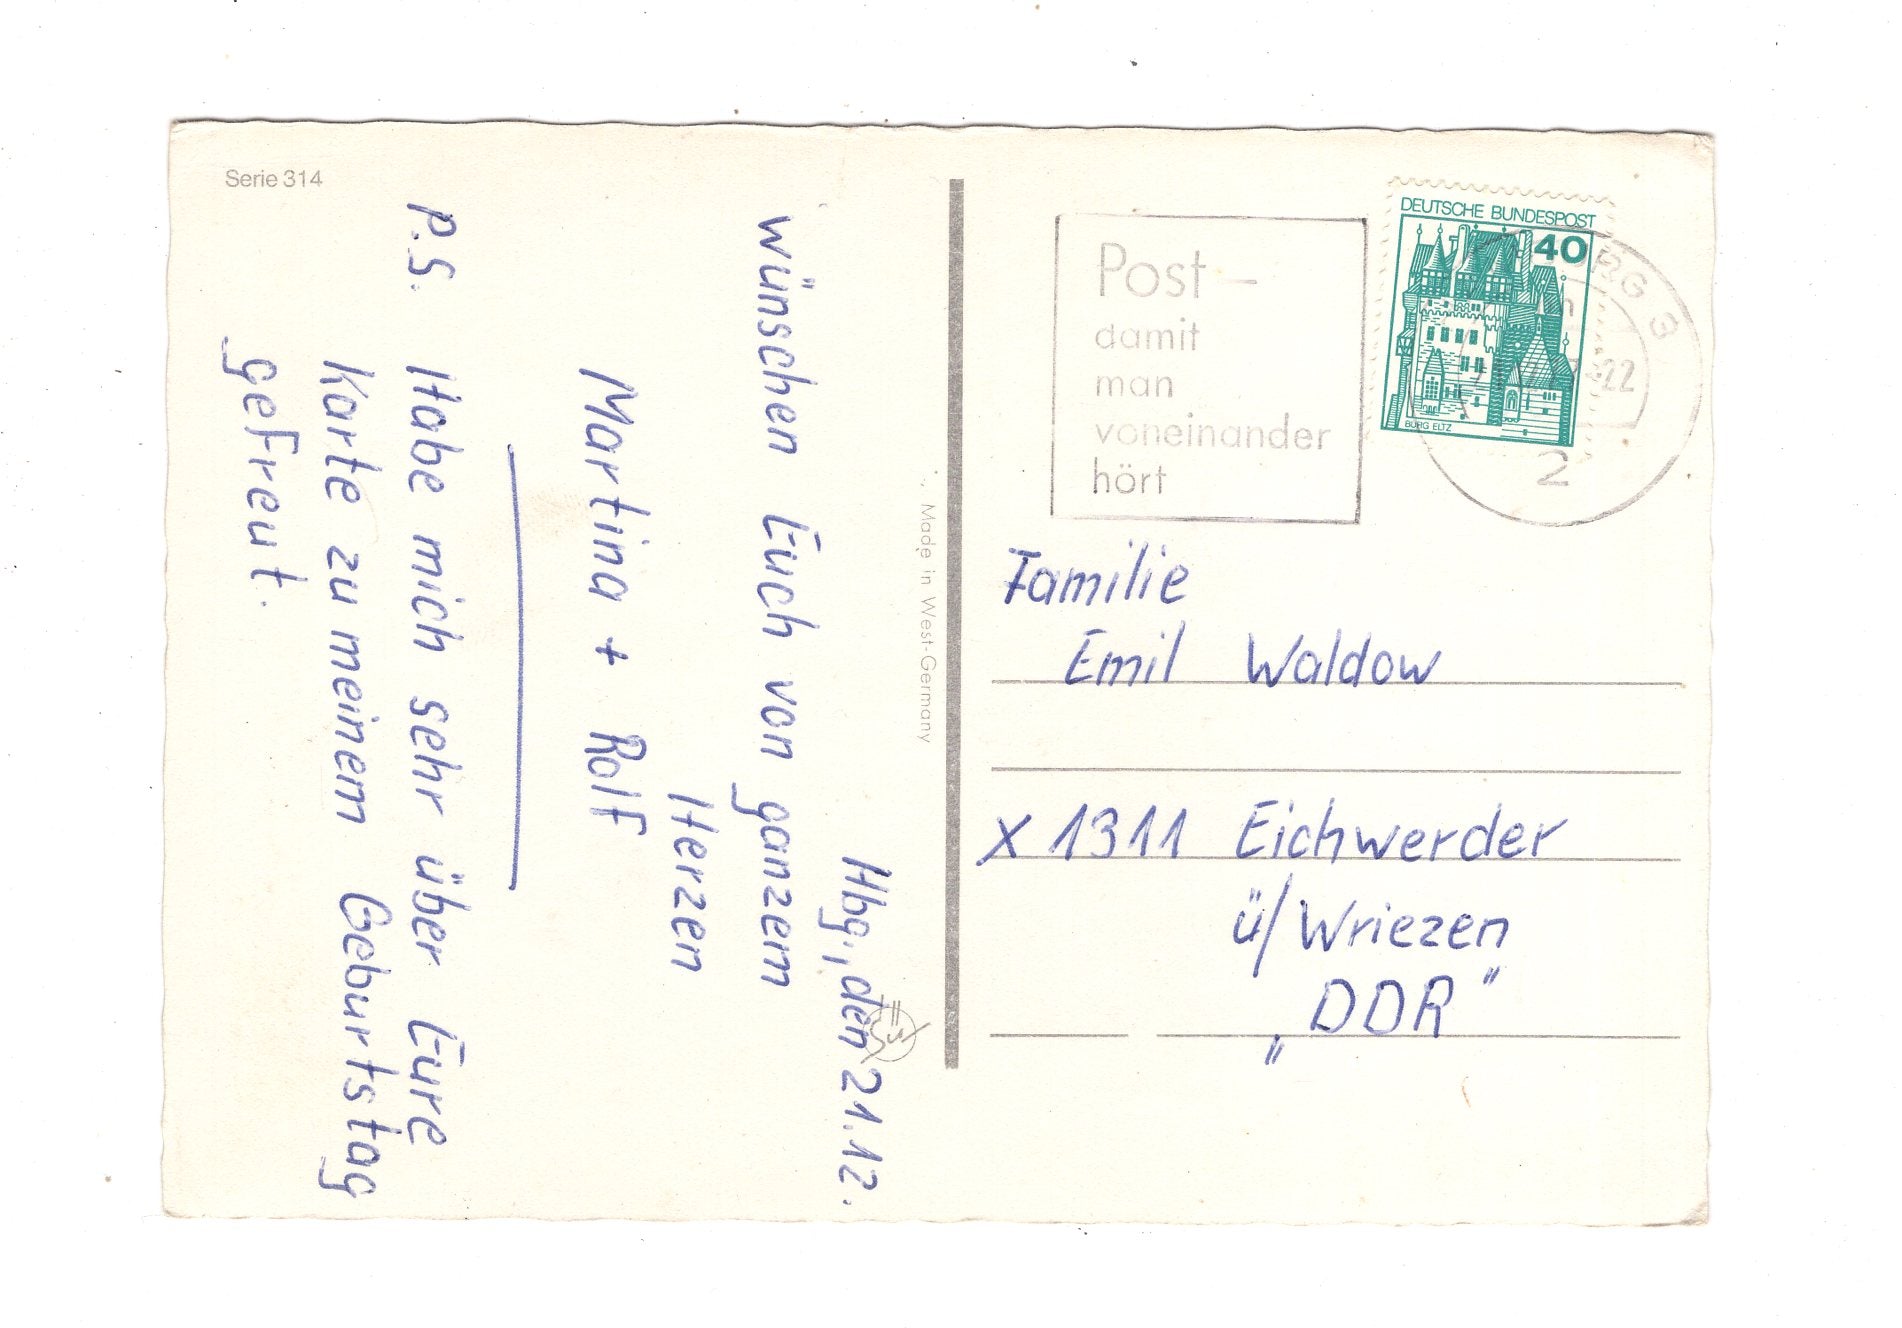 Serie 314
Hbg., den 21.12.
wünschen Euch von ganzem
Herzen
Martina + Rolf
P.S. Habe mich sehr über Eure
Karte zu meinem Geburtstag
gefreut.
Made in West-Germany
Post –
damit
man
voneinander
hört
DEUTSCHE BUNDESPOST
40
BURG ELTZ
3
22
2
Familie
Emil Waldow
X 1311 Eichwerder
ü/Wriezen
„DDR"